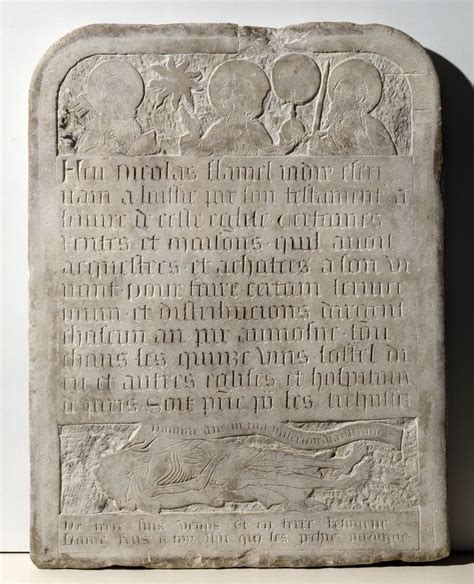 Feu Nicolas flamel jadiz escri
uain a laissie par son testament a
leuure de ceste eglise certaines
rentes et maisons quil auoit
acquestees et achatees a son vi
uant pour faire certain seruice
diuin et distribucions dargent
chascun an par aumosne tou
chans les quinze vins lostel di
eu et autres eglises et hospitaux
a paris Soit prie pour les trespassez
Domine deus in tua misericordia speraui
De terre suis venus et en terre retorne
Lame rens a toy ihu qui les pechiez pardonne